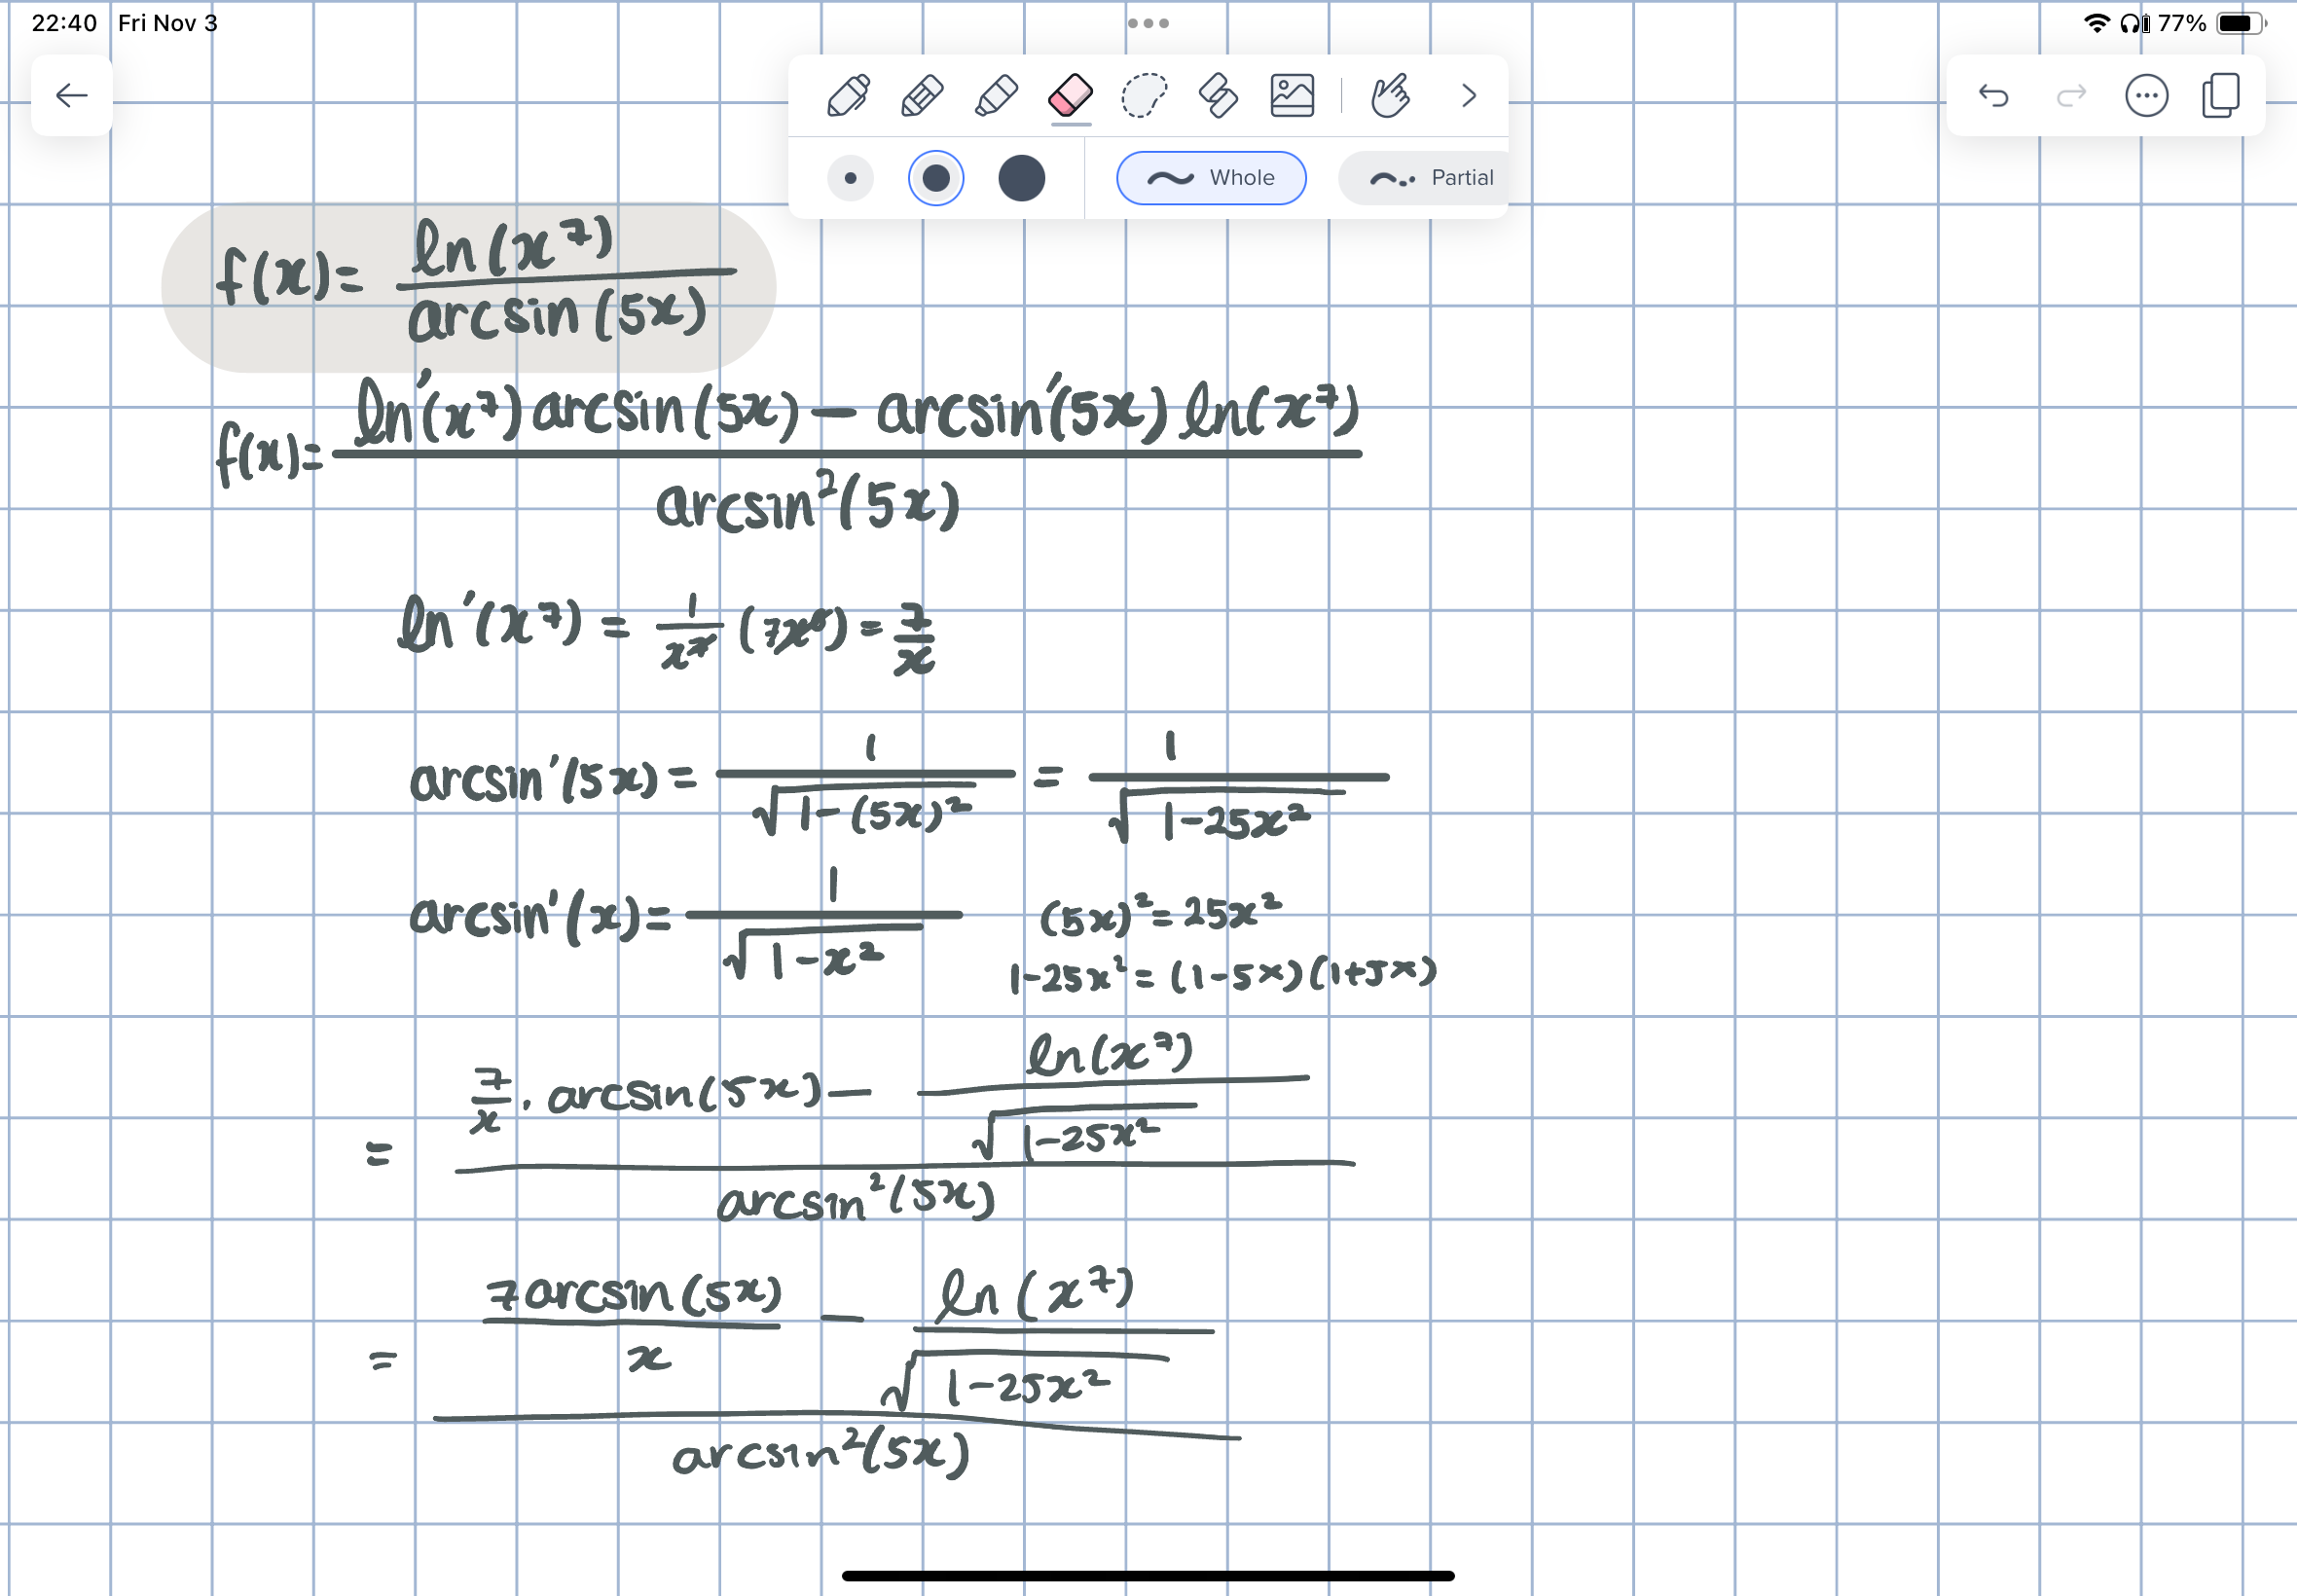 22:40 Fri Nov 3 77%
Whole Partial
f(x) = ln(x⁷) / arcsin(5x)
f(x) = (ln'(x⁷) arcsin(5x) − arcsin'(5x) ln(x⁷)) / arcsin²(5x)
ln'(x⁷) = 1/x⁷ (7x⁶) = 7/x
arcsin'(5x) = 1/√(1−(5x)²) = 1/√(1−25x²)
arcsin'(x) = 1/√(1−x²) (5x)² = 25x²
1−25x² = (1−5x)(1+5x)
= (7/x · arcsin(5x) − ln(x⁷)/√(1−25x²)) / arcsin²(5x)
= (7arcsin(5x)/x − ln(x⁷)/√(1−25x²)) / arcsin²(5x)